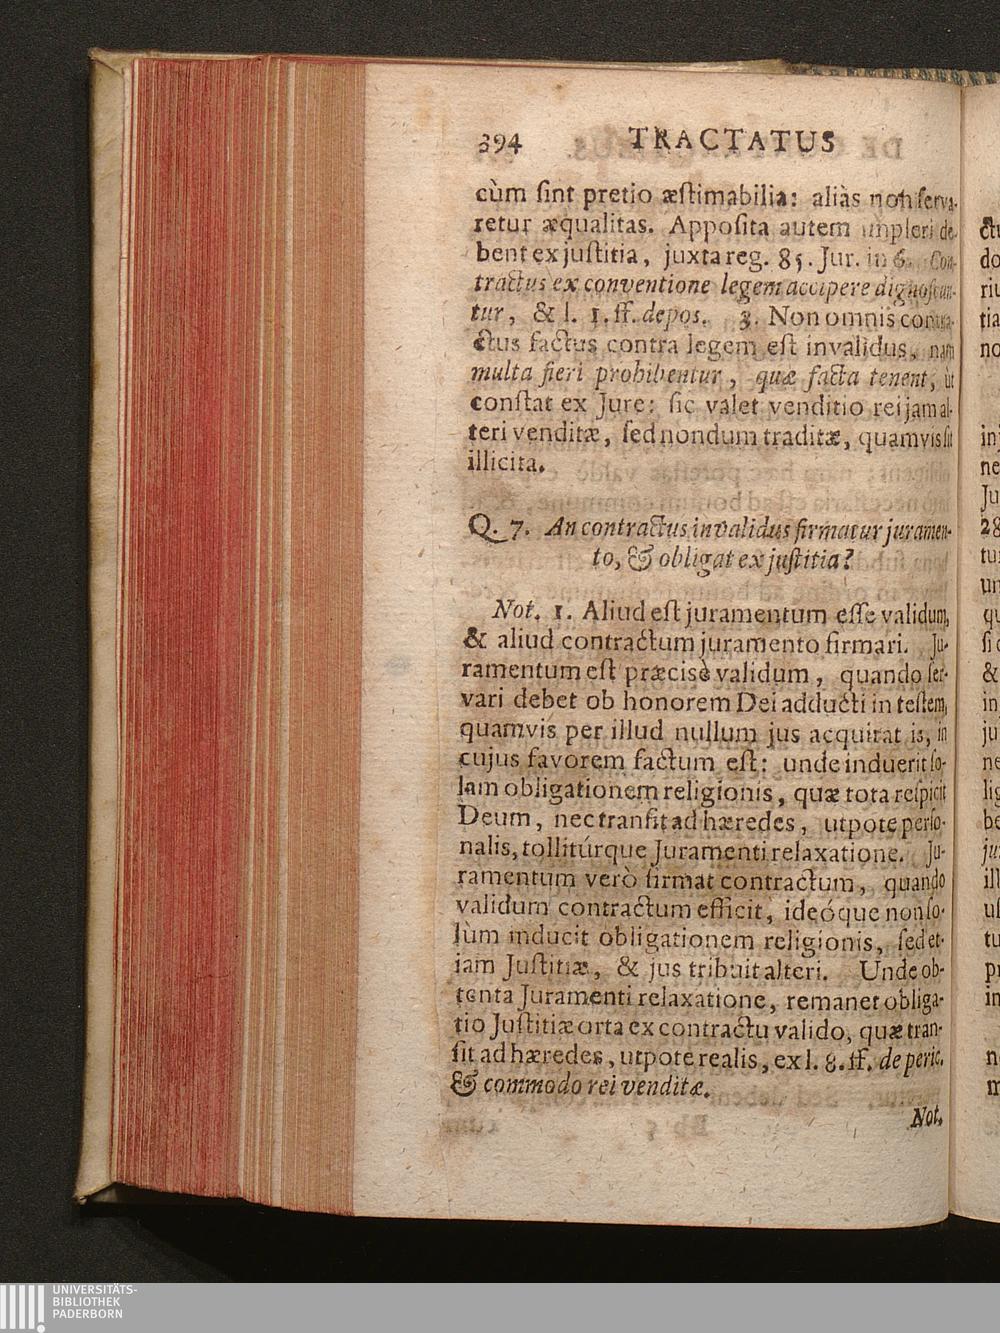 394 TRACTATUS
cùm ſint pretio æſtimabilia: aliàs non ſerva-
retur æqualitas. Appoſita autem impleri de-
bent ex juſtitia, juxta reg. 85. Jur. in 6. Con-
tractus ex conventione legem accipere dignoſcun-
tur, & l. 1. ff. depos. 3. Non omnis contra-
ctus factus contra legem eſt invalidus, nam
multa fieri prohibentur, quæ facta tenent, ùt
conſtat ex Jure: ſic valet venditio rei jam al-
teri venditæ, ſed nondum traditæ, quamvis ſit
illicita.
Q. 7. An contractus invalidus firmatur juramen-
to, & obligat ex juſtitia?
Not. 1. Aliud eſt juramentum eſſe validum,
& aliud contractum juramento firmari. Ju-
ramentum eſt præcisè validum, quando ſer-
vari debet ob honorem Dei adducti in teſtem,
quamvis per illud nullum jus acquirat is, in
cujus favorem factum eſt: unde induerit ſo-
lam obligationem religionis, quæ tota reſpicit
Deum, nec tranſit ad hæredes, utpote perſo-
nalis, tollitúrque Juramenti relaxatione. Ju-
ramentum verò firmat contractum, quando
validum contractum efficit, ideóque non ſo-
lùm inducit obligationem religionis, ſed et-
iam Juſtitiæ, & jus tribuit alteri. Unde ob-
tenta Juramenti relaxatione, remanet obliga-
tio Juſtitiæ orta ex contractu valido, quæ tran-
ſit ad hæredes, utpote realis, ex l. 8. ff. de peric.
& commodo rei venditæ.
Not.
UNIVERSITÄTS-
BIBLIOTHEK
PADERBORN